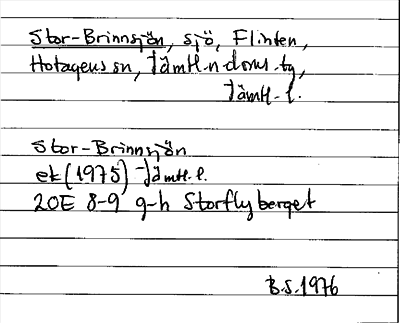 Stor-Brinnsjön, sjö, Flinten,
Hotagens sn, Jämtl. n. doms. tg,
Jämtl. l.
Stor-Brinnsjön
ek (1975) Jämtl. l.
20E 8-9 g-h Storflyberget
B.S. 1976